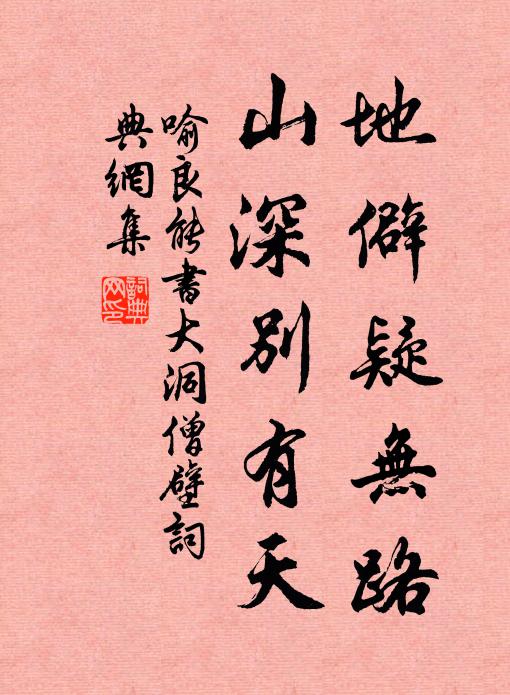 地僻疑無路
山深別有天
喻良能書大洞僧壁詞
典網集
詞典
网印